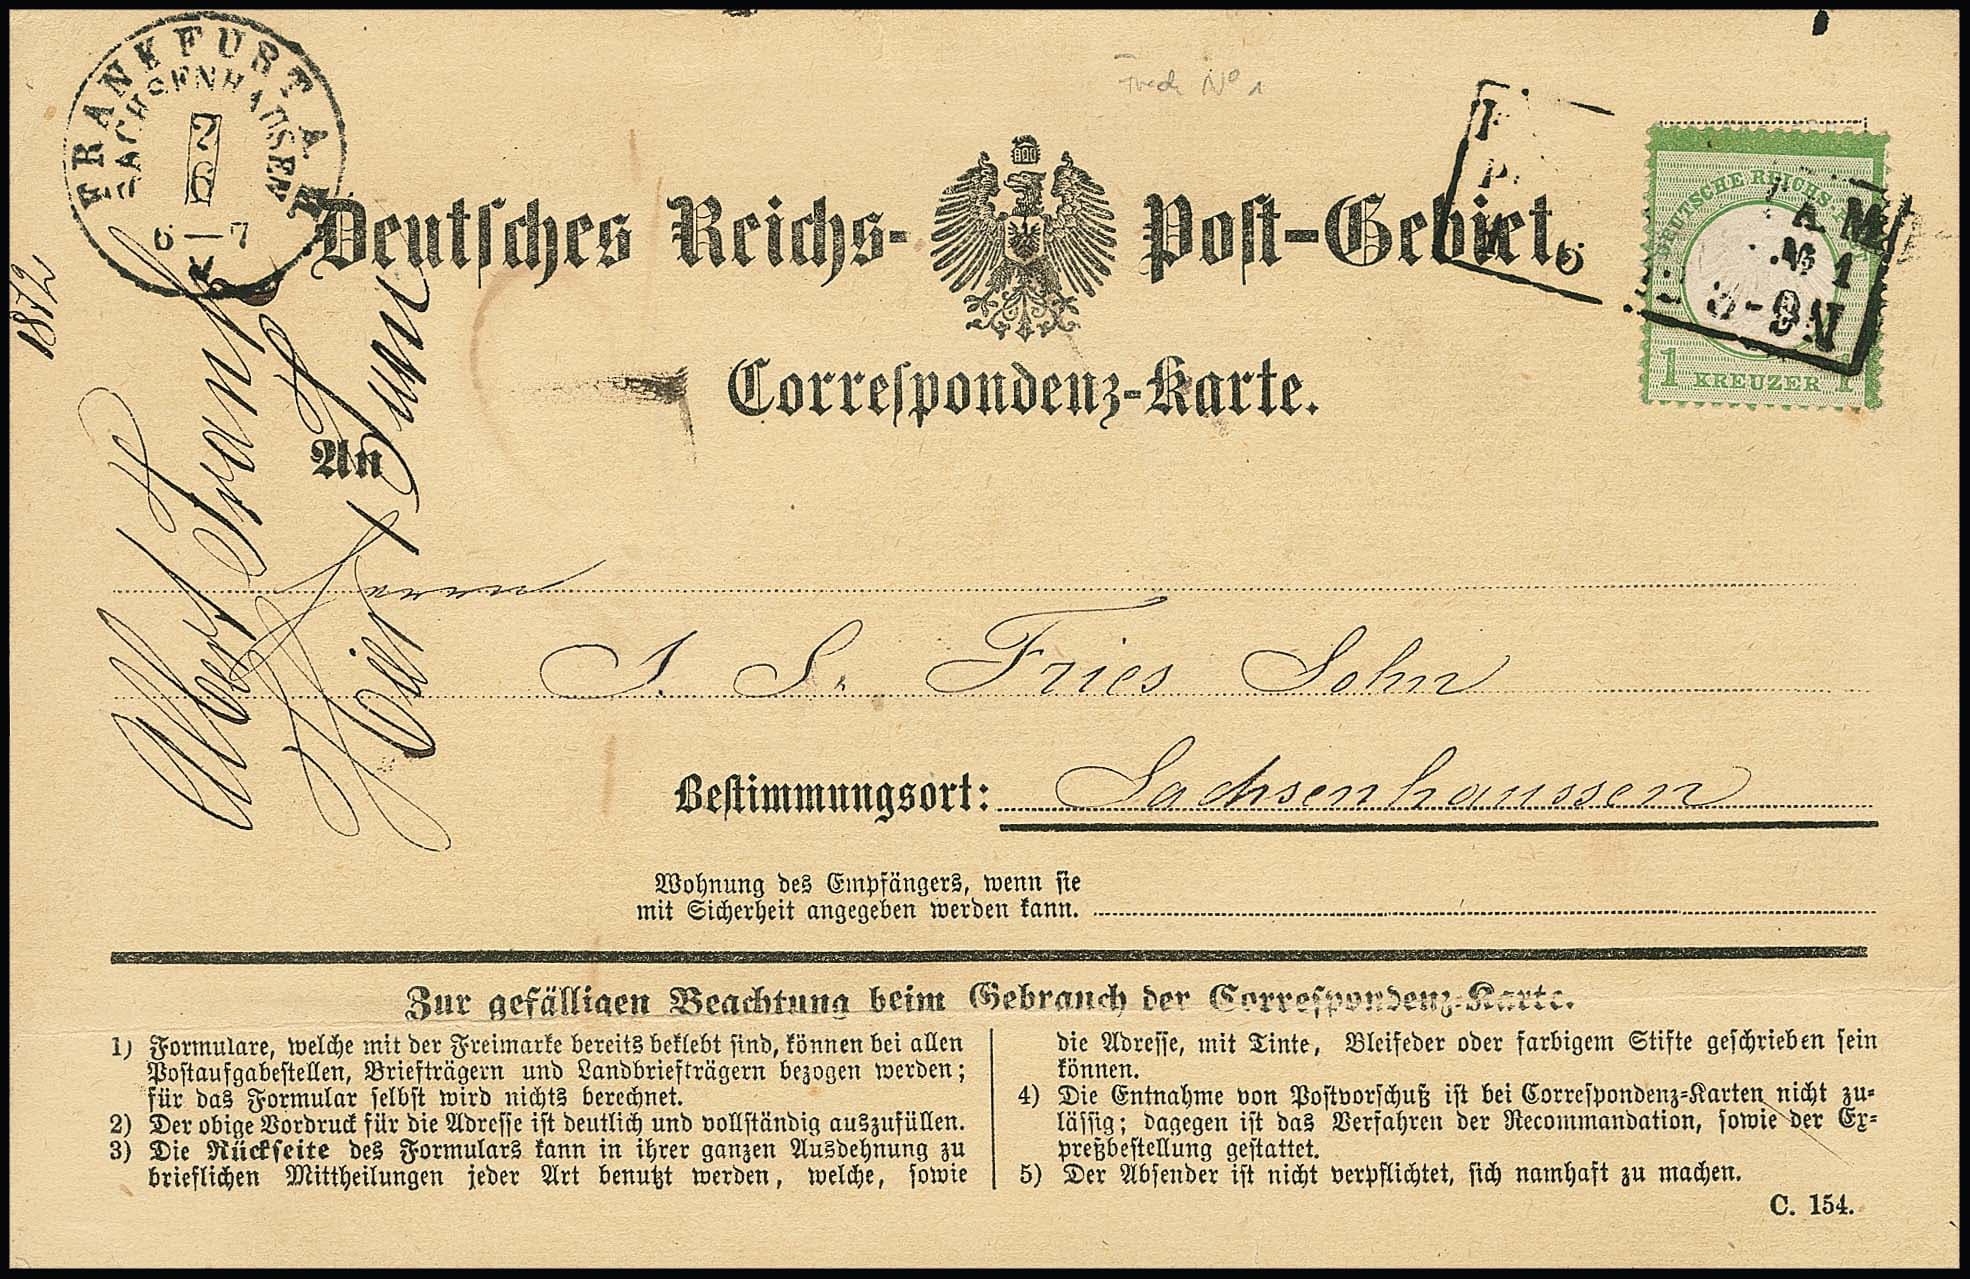 FRANKFURT A. M.
SACHSENHAUSEN
2
6
6—7
1872
Deutsches Reichs-Post-Gebiet.
DEUTSCHE REICHS
A.M.
№ 1
8-9N
1 KREUZER 1
Correspondenz-Karte.
An
Albert Frank
Juni
Herrn
J. S. Fries Sohn
Bestimmungsort: Sachsenhaussen
Wohnung des Empfängers, wenn sie
mit Sicherheit angegeben werden kann.
Zur gefälligen Beachtung beim Gebrauch der Correspondenz-Karte.
1) Formulare, welche mit der Freimarke bereits beklebt sind, können bei allen
Postaufgabestellen, Briefträgern und Landbriefträgern bezogen werden;
für das Formular selbst wird nichts berechnet.
2) Der obige Vordruck für die Adresse ist deutlich und vollständig auszufüllen.
3) Die Rückseite des Formulars kann in ihrer ganzen Ausdehnung zu
brieflichen Mittheilungen jeder Art benutzt werden, welche, sowie
die Adresse, mit Tinte, Bleifeder oder farbigem Stifte geschrieben sein
können.
4) Die Entnahme von Postvorschuß ist bei Correspondenz-Karten nicht zu-
lässig; dagegen ist das Verfahren der Recommandation, sowie der Ex-
preßbestellung gestattet.
5) Der Absender ist nicht verpflichtet, sich namhaft zu machen.
C. 154.